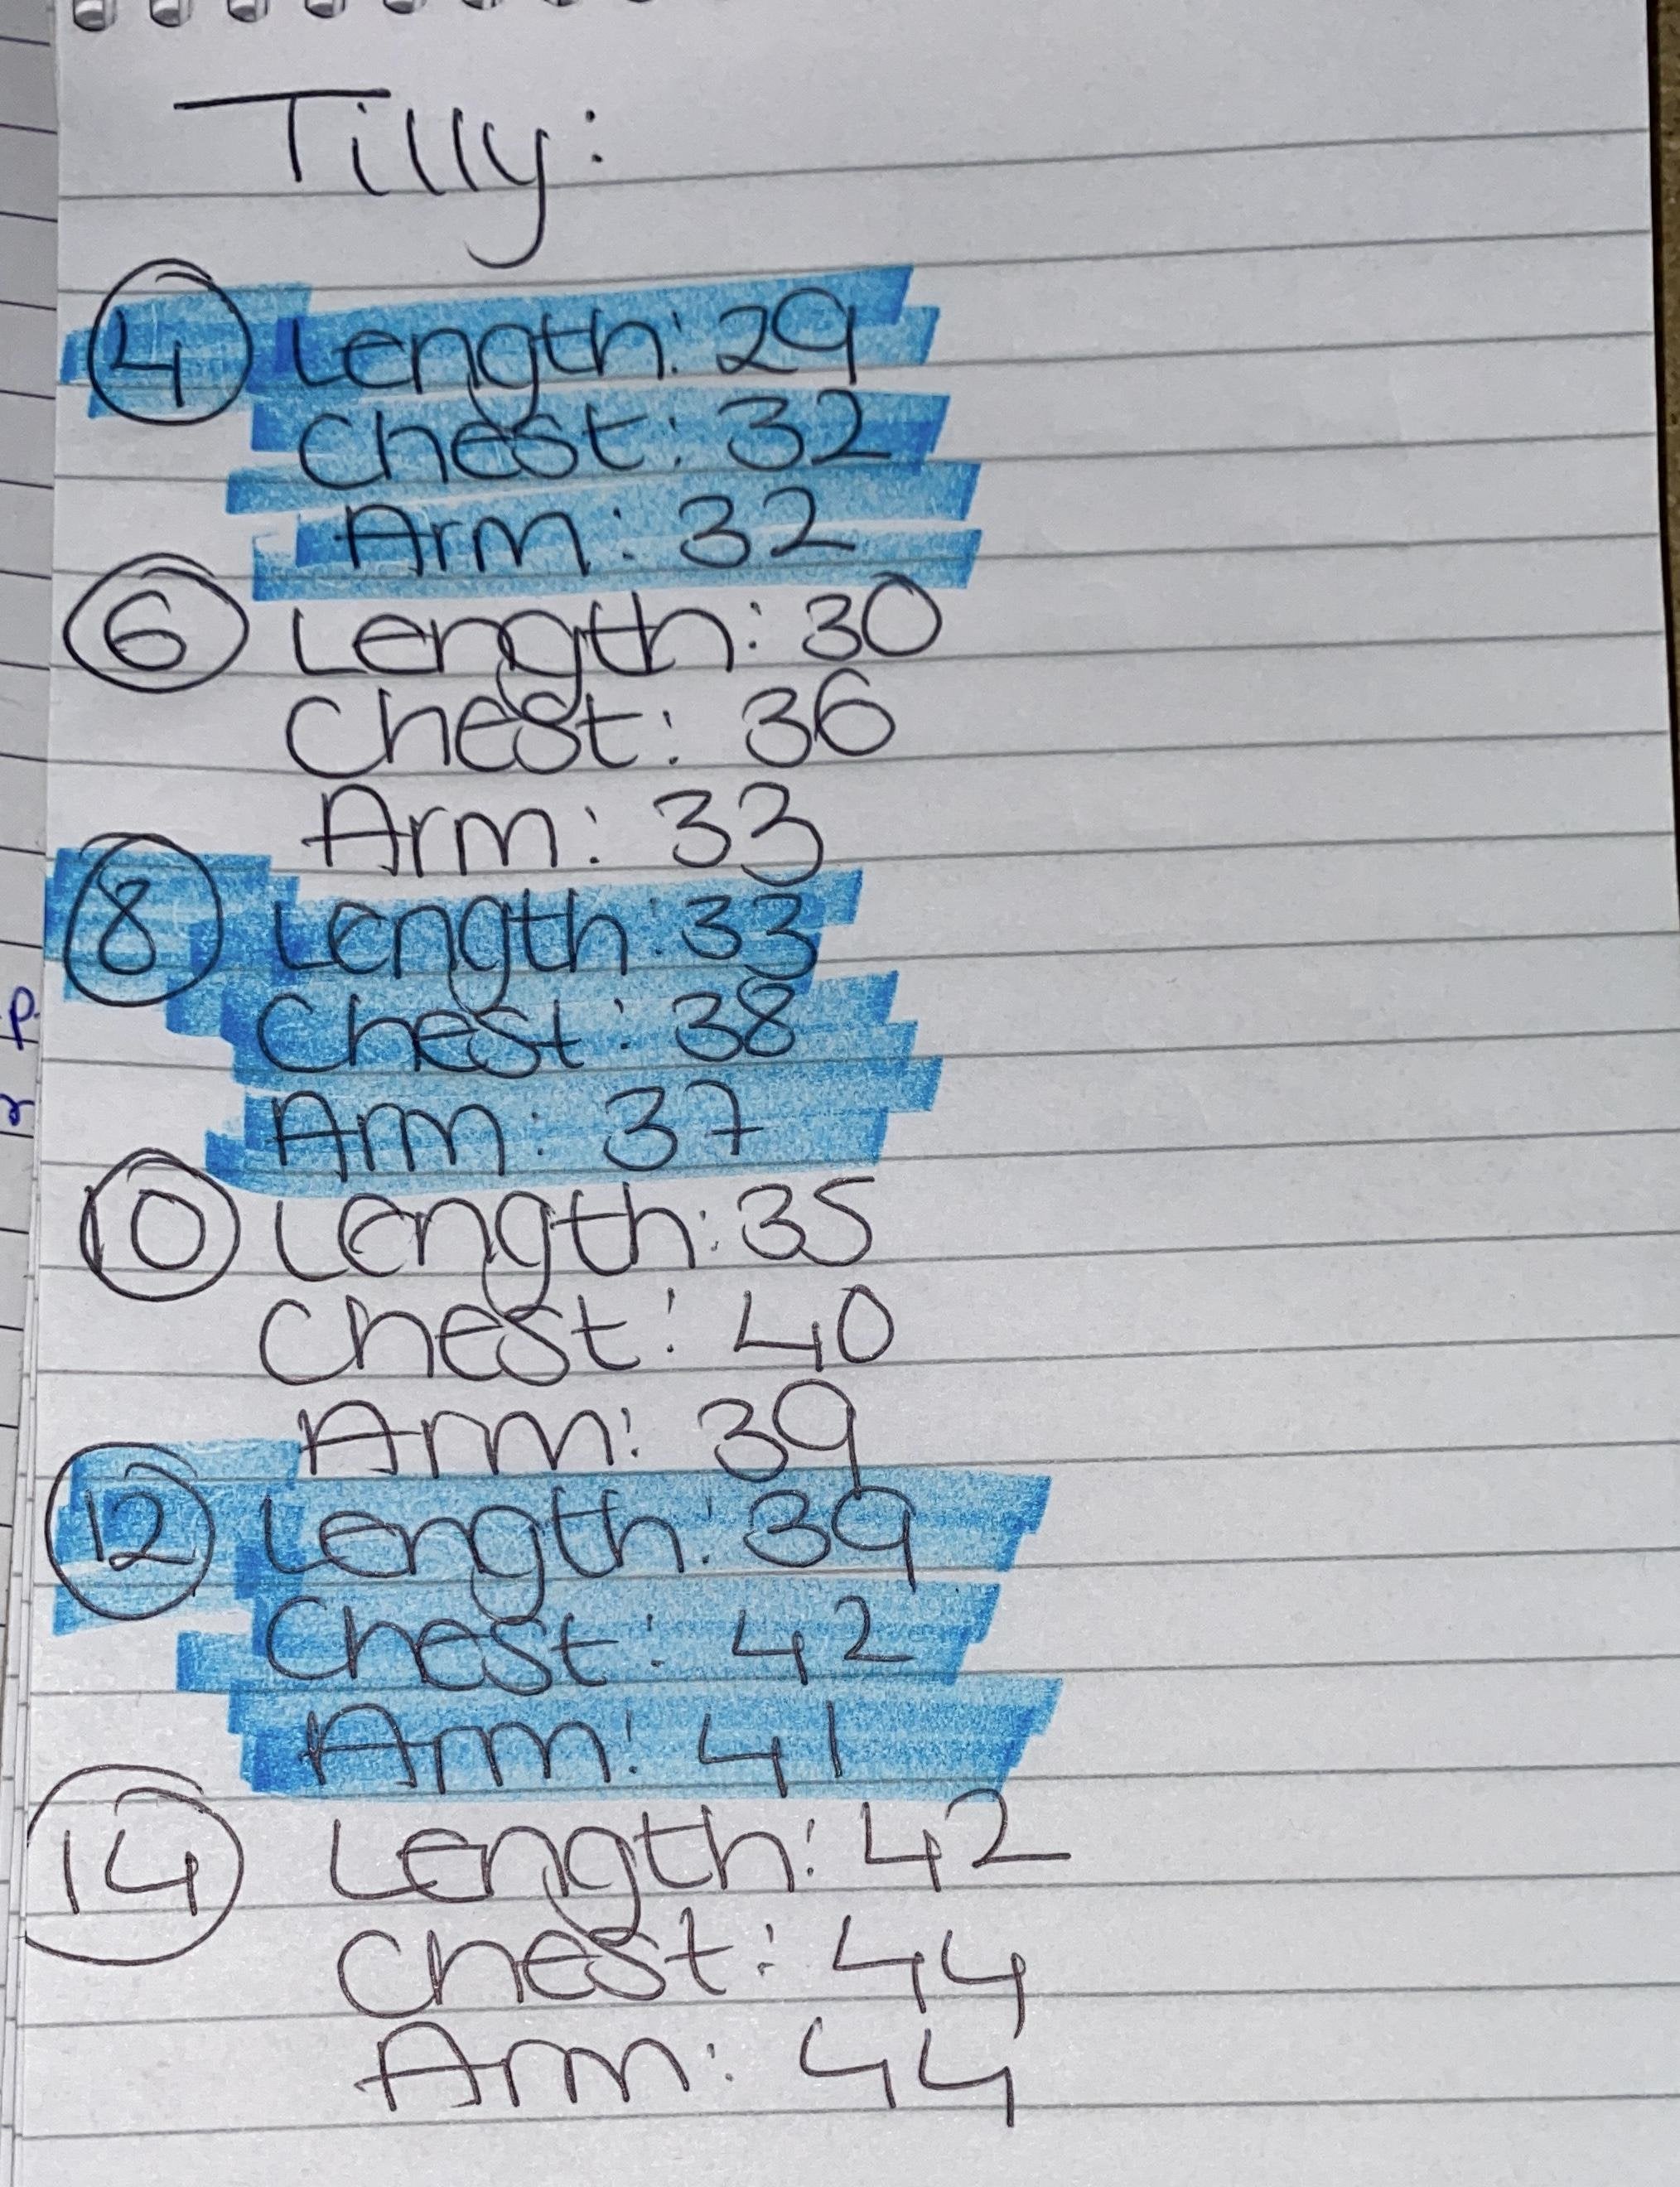 Tilly:
4 Length: 29
Chest: 32
Arm: 32
6 Length: 30
Chest: 36
Arm: 33
8 Length: 33
Chest: 38
Arm: 37
10 Length: 35
Chest: 40
Arm: 39
12 Length: 39
Chest: 42
Arm: 41
14 Length: 42
Chest: 44
Arm: 44